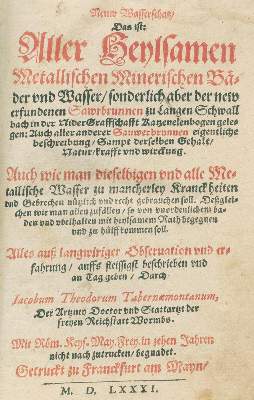 Neuw Wasserschatz/
Das ist:
Aller Heylsamen
Metallischen Minerischen Bä-
der vnd Wasser/ sonderlich aber der new
erfundenen Sawrbrunnen zu Langen Schwall
bach in der Nider Graffschafft Katzenelenbogen gele-
gen: Auch aller anderer Sauwerbrunnen eigentliche
beschreibung/ Sampt derselben Gehalt/
Natur/ krafft vnd wirckung.
Auch wie man dieselbigen vnd alle Me-
tallische Wasser zu mancherley Kranckheiten
vnd Gebrechen nützlich vnd recht gebrauchen soll. Deßglei-
chen wie man allen zufällen/ so vor vnordenlichem
baden vnd vbelhalten mit heilsamem Raht begegnen
vnd zu hülff kommen soll.
Alles auß langwiriger Observation vnd er-
fahrung/ auffs fleissigst beschrieben vnd
an Tag geben/ Durch
Iacobum Theodorum Tabernæmontanum,
Der Artzney Doctor vnd Stattartzt der
freyen Reichstatt Wormbs.
Mit Röm. Keys. May. Frey. in zehen Jahren
nicht nach zutrucken/ begnadet.
Getruckt zu Franckfurt am Mayn/
M. D. LXXXI.